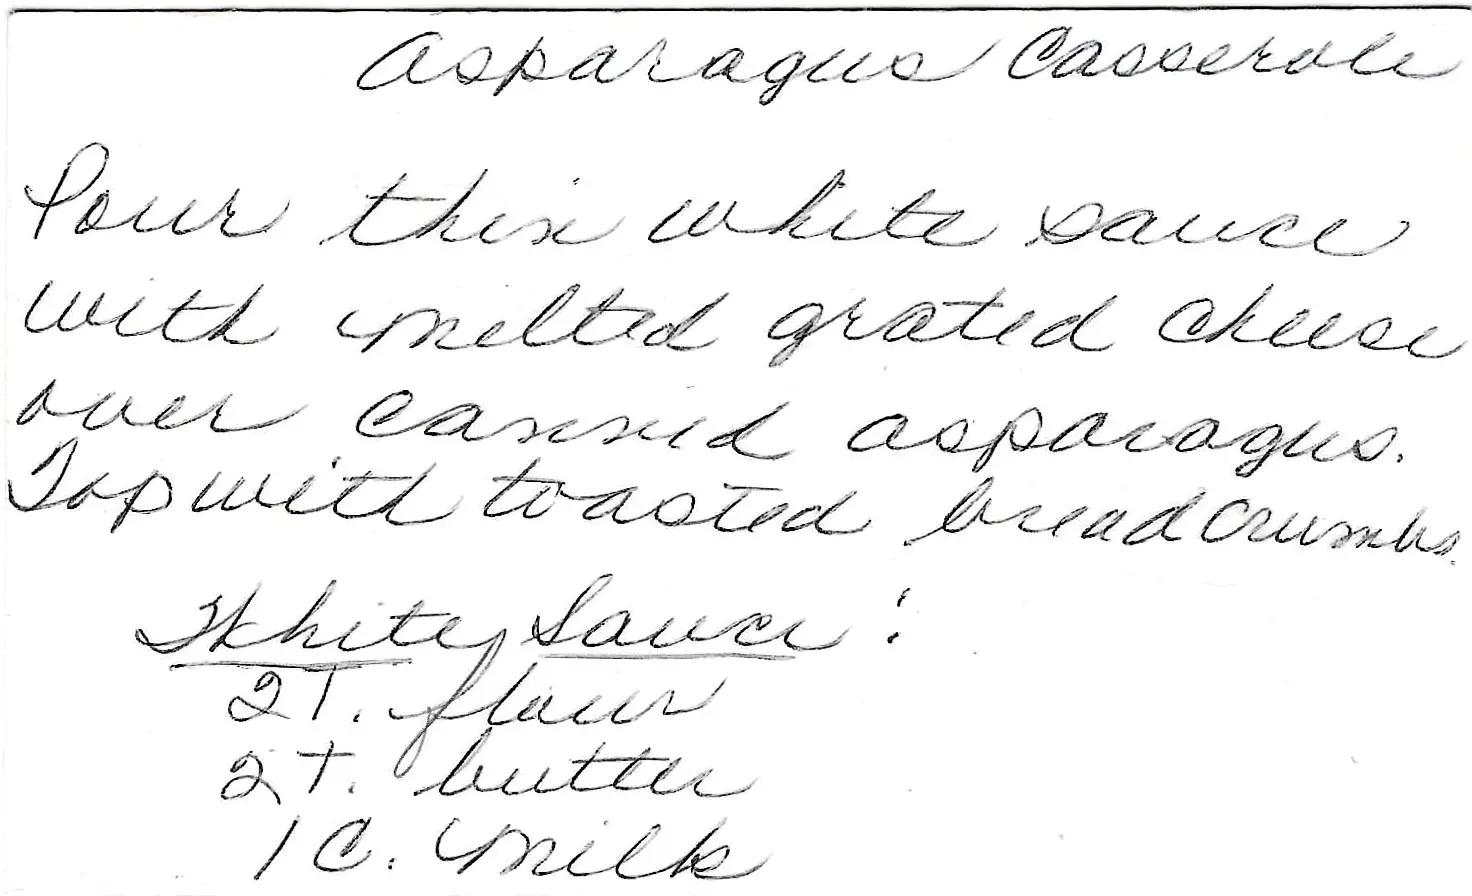 Asparagus Casserole
Pour thin white sauce
with melted grated cheese
over canned asparagus.
Top with toasted bread crumbs.
White Sauce:
2T. flour
2T. butter
1 C. milk